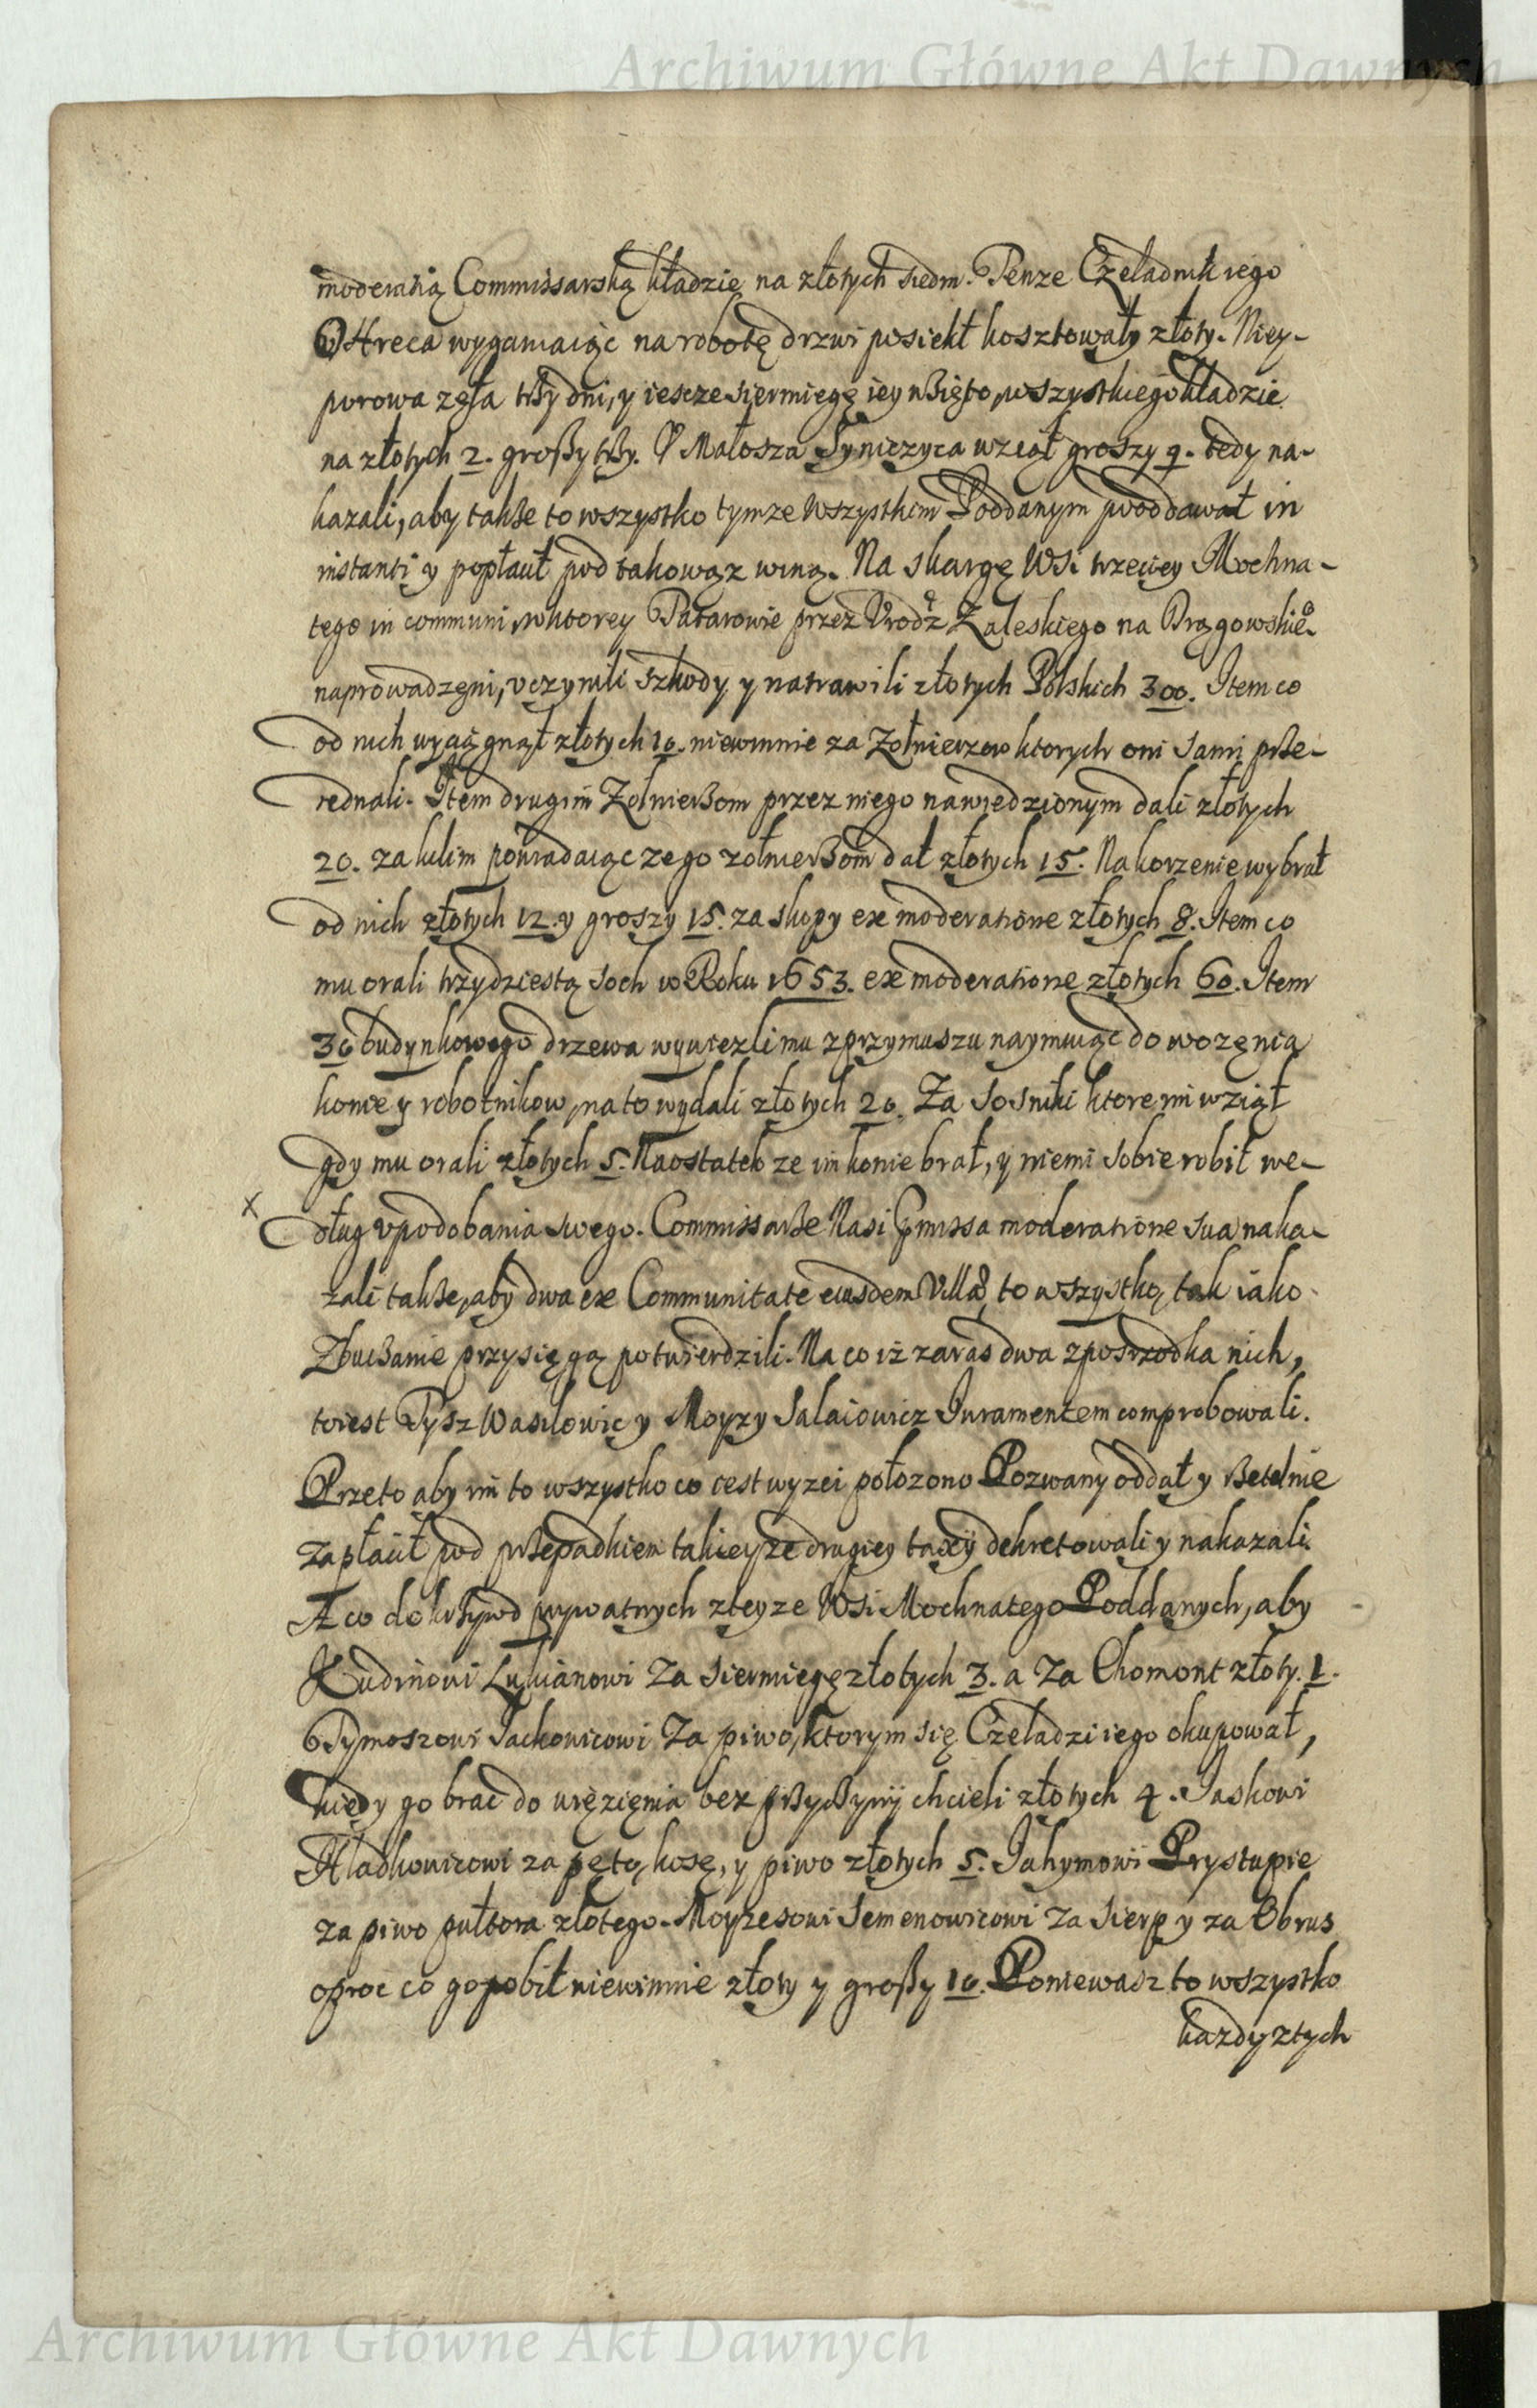 Archiwum Główne Akt Dawnych
moderatią Commissarską kładzie na złotych siedm. Tenze Czeladnik iego
V Hreca wyganiaiąc na robotę drzwi posiekł kosztowały złoty. Niey-
porowa zęła trzy dni, y iescze siermięgę iey wzięto, wszystkiego kładzie
na złotych 2. groszy trzy. V Małosza Syniczyca wziął groszy 9. tedy na-
kazali, aby takze to wszystko tymze wszystkim Poddanym pooddawał in
instanti y popłacił pod takowąz winą. Na skargę Wsi trzeciey Mochna-
tego in communi, w ktorey Tatarowie przez Vrodz. Zaleskiego na Brągowskie.
naprowadzeni, vczynili szkody y natrawili złotych Polskich 300. Item co
od nich wyciągnął złotych 10. niewinnie za Zołnierzow ktorych oni sami prze-
iednali. Item drugim Zołnierzom przez niego nawiedzionym dali złotych
20. za kilim powiadaiąc ze go zołnierzom dał złotych 15. Na korzenie wybrał
od nich złotych 12. y groszy 15. za skopy ex moderatione złotych 8. Item co
mu orali trzydziestą soch w Roku 1653. ex moderatione złotych 60. Item
30 budynkowego drzewa wywiezli mu z przymuszu naymuiąc do wozęnia
konie y robotnikow, na to wydali złotych 20. Za sosniki ktore im wziął
gdy mu orali złotych 5. Naostatek ze im konie brał, y niemi sobie robił we-
x
dług vpodobania swego. Commissarze Nasi pmissa moderatione sua naka-
zali takze, aby dwa ex Communitate eiusdem Villæ to wszystko, tak iako
Zbuczanie przysięgą potwierdzili. Na co iż zaras dwa zposrzodka nich,
to iest Tysz Wasilowic y Moyzy Salaiowicz Iuramentem comprobowali.
Przeto aby im to wszystko co iest wyzei połozono Pozwany oddał y rzetelnie
zapłacił pod przepadkiem takieyze drugiey taxy dekretowali y nakazali.
A co do krzywd prywatnych zteyze Wsi Mochnatego Poddanych, aby
Kudinowi Lukianowi Za siermięgę złotych 3. a Za Chomont złoty. 1.
Tymoszowi Jackowicowi Za piwo, ktorym się Czeladzi iego okupował,
kiedy go brac do więzięnia bez przyczyny chcieli złotych 4. Jaskowi
Hladkowicowi za pęto, kosę, y piwo złotych 5. Jakymowi Prystupie
za piwo pułtora złotego. Moyzesowi Semenowicowi za sierp y za Obrus
oproc co go pobił niewinnie złoty y groszy 10. Poniewasz to wszystko
kazdy ztych
Archiwum Główne Akt Dawnych